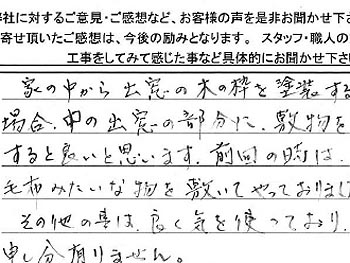 弊社に対するご意見・ご感想など、お客様の声を是非お聞かせ下さ
寄せ頂いたご感想は、今後の励みとなります。 スタッフ・職人の
工事をしてみて感じた事など具体的にお聞かせ下さ
家の中から出窓の木の枠を塗装する
場合、中の出窓の部分に、敷物を
すると良いと思います。前回の時は、
毛布みたいな物を敷いてやっておりまし
その他の事は、良く気を使っており、
申し分有りません。